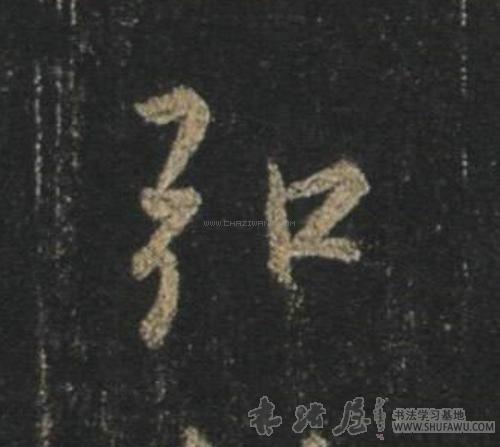 弘
WWW.CHAZIWANG.COM
书法学习基地
WWW.SHUFAWU.COM